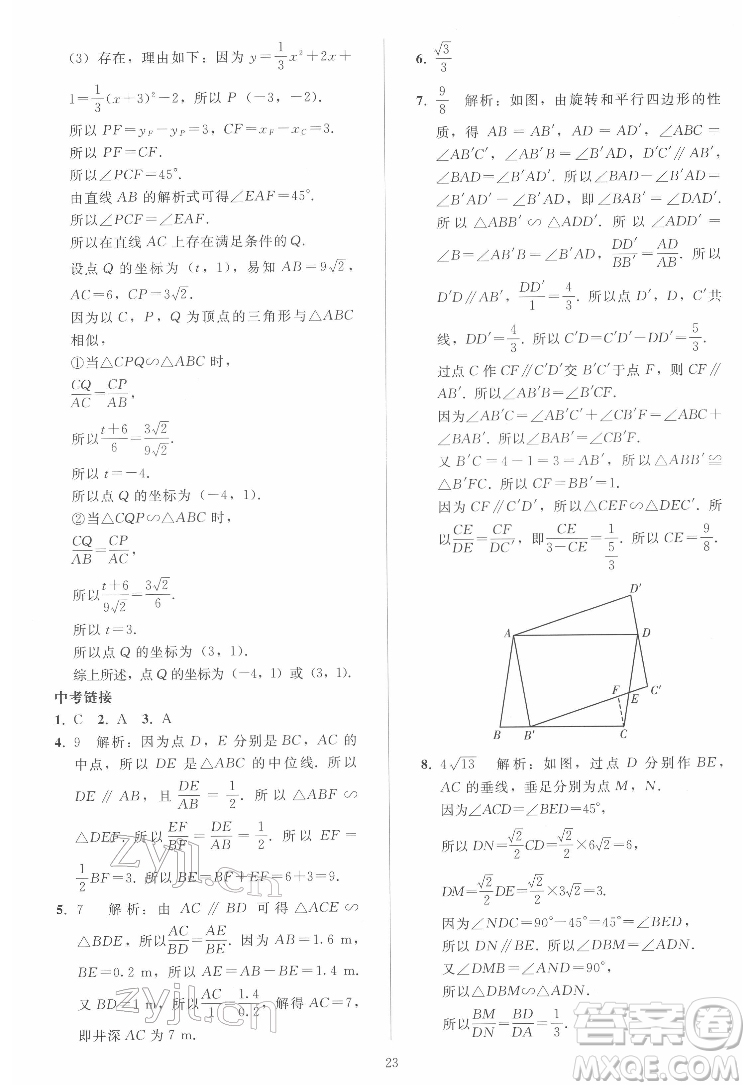 (3) 存在，理由如下：因为 y=1/3x²+2x+
1=1/3(x+3)²-2，所以 P (-3，-2)．
所以 PF=y_F-y_P=3，CF=x_F-x_C=3．
所以 PF=CF．
所以∠PCF=45°．
由直线 AB 的解析式可得∠EAF=45°．
所以∠PCF=∠EAF．
所以在直线 AC 上存在满足条件的 Q．
设点 Q 的坐标为 (t，1)，易知 AB=9√2，
AC=6，CP=3√2．
因为以 C，P，Q 为顶点的三角形与△ABC
相似，
①当△CPQ∽△ABC 时，
CQ/AC=CP/AB，
所以(t+6)/6=3√2/9√2．
所以 t=-4．
所以点 Q 的坐标为 (-4，1)．
②当△CQP∽△ABC 时，
CQ/AB=CP/AC，
所以(t+6)/9√2=3√2/6．
所以 t=3．
所以点 Q 的坐标为 (3，1)．
综上所述，点 Q 的坐标为 (-4，1) 或 (3，1)．
中考链接
1. C 2. A 3. A
4. 9 解析：因为点 D，E 分别是 BC，AC 的
中点，所以 DE 是△ABC 的中位线．所以
DE∥AB，且 DE/AB=1/2．所以△ABF∽
△DEF．所以EF/BF=DE/AB=1/2．所以 EF=
1/2BF=3．所以 BE=BF+EF=6+3=9．
5. 7 解析：由 AC∥BD 可得△ACE∽
△BDE，所以AC/BD=AE/BE．因为 AB=1.6 m，
BE=0.2 m，所以 AE=AB-BE=1.4 m．
又 BD=1 m，所以AC/1=1.4/0.2，解得 AC=7，
即井深 AC 为 7 m．
6. √3/3
7. 9/8 解析：如图，由旋转和平行四边形的性
质，得 AB=AB′，AD=AD′，∠ABC=
∠AB′C′，∠BAD=∠B′AD′，D′C′∥AB′，
∠BAD=∠B′AD′．所以∠BAD-∠B′AD=
∠B′AD′-∠B′AD，即∠BAB′=∠DAD′．
所以△ABB′∽△ADD′．所以∠ADD′=
∠B=∠AB′B=∠AD′D，DD′/BB′=AD/AB．所以
D′D∥AB′，DD′/1=4/3．所以点 D′，D，C′共
线，DD′=4/3．所以 C′D=C′D′-DD′=5/3．
过点 C 作 CF∥C′D′交 B′C′于点 F，则 CF∥
AB′．所以∠AB′B=∠B′CF．
因为∠AB′C=∠AB′C′+∠CB′F=∠ABC+
∠BAB′．所以∠BAB′=∠CB′F．
又 B′C=4-1=3=AB，所以△ABB′≌
△B′FC．所以 CF=BB′=1．
因为 CF∥C′D′，所以△CEF∽△DEC′．所
以CE/DE=CF/DC′，即CE/(3-CE)=1/(5/3)．所以 CE=9/8．
D′
A
D
F
E
C′
B
B′
C
8. 4√13 解析：如图，过点 D 分别作 BE，
AC 的垂线，垂足分别为点 M，N．
因为∠ACD=∠BED=45°，
所以 DN=√2/2CD=√2/2×6√2=6，
DM=√2/2DE=√2/2×3√2=3．
因为∠NDC=90°-45°=45°，
所以 DN∥BE．
又∠DMB=∠AND=90°，
所以△DMB∽△AND．
所以BM/DN=BD/DA=DM/AN=1/3．
23
zyjl.cn
zyjl.cn
答案卷